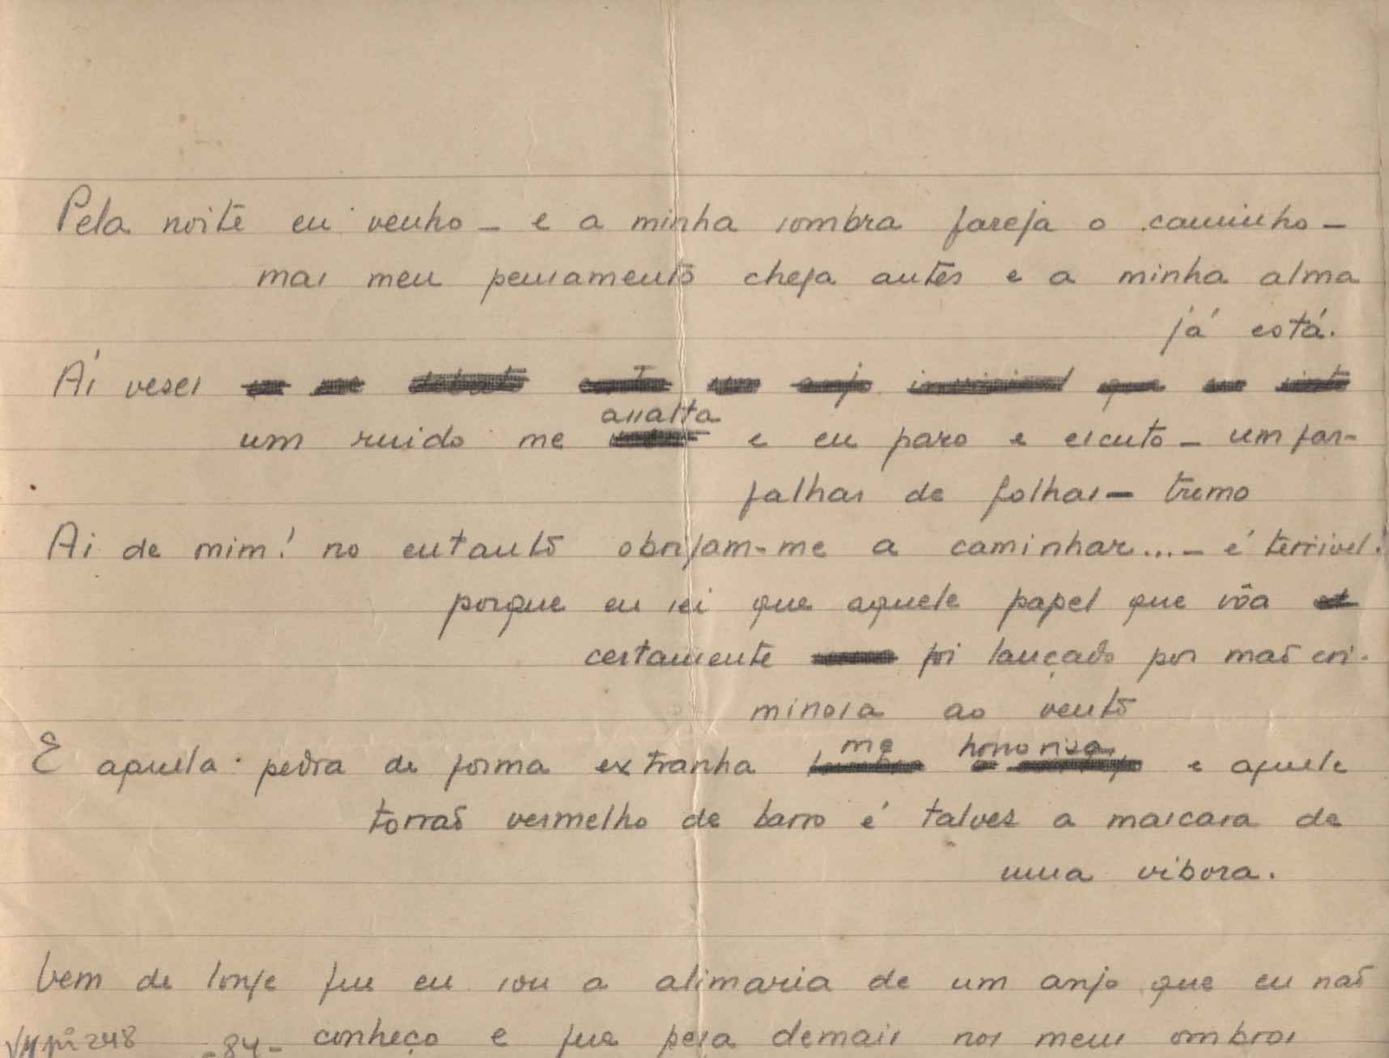 Pela noite eu venho – e a minha sombra fareja o caminho –
mas meu pensamento chega antes e a minha alma
já está.
Ás vezes
assalta
um ruido me e eu paro e escuto – um far-
falhar de folhas – tremo
Ai de mim! no entanto obrigam-me a caminhar... – é terrivel!
porque eu sei que aquele papel que vôa
certamente foi lançado por mão cri-
minosa ao vento
me horrorisa
E aquela pedra de forma extranha e aquele
torrão vermelho de barro é talvez a mascara de
uma vibora.
Vem de longe que eu sou a alimaria de um anjo que eu não
-84- conheço e que pesa demais nos meus ombros